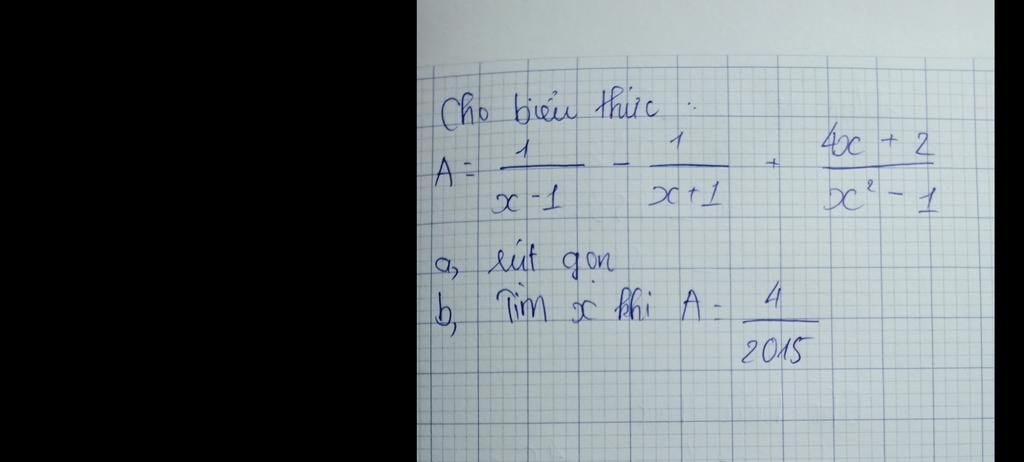 Cho biểu thức :
A = 1/(x - 1) - 1/(x + 1) + (4x + 2)/(x² - 1)
a, rút gọn
b, Tìm x khi A = 4/2015